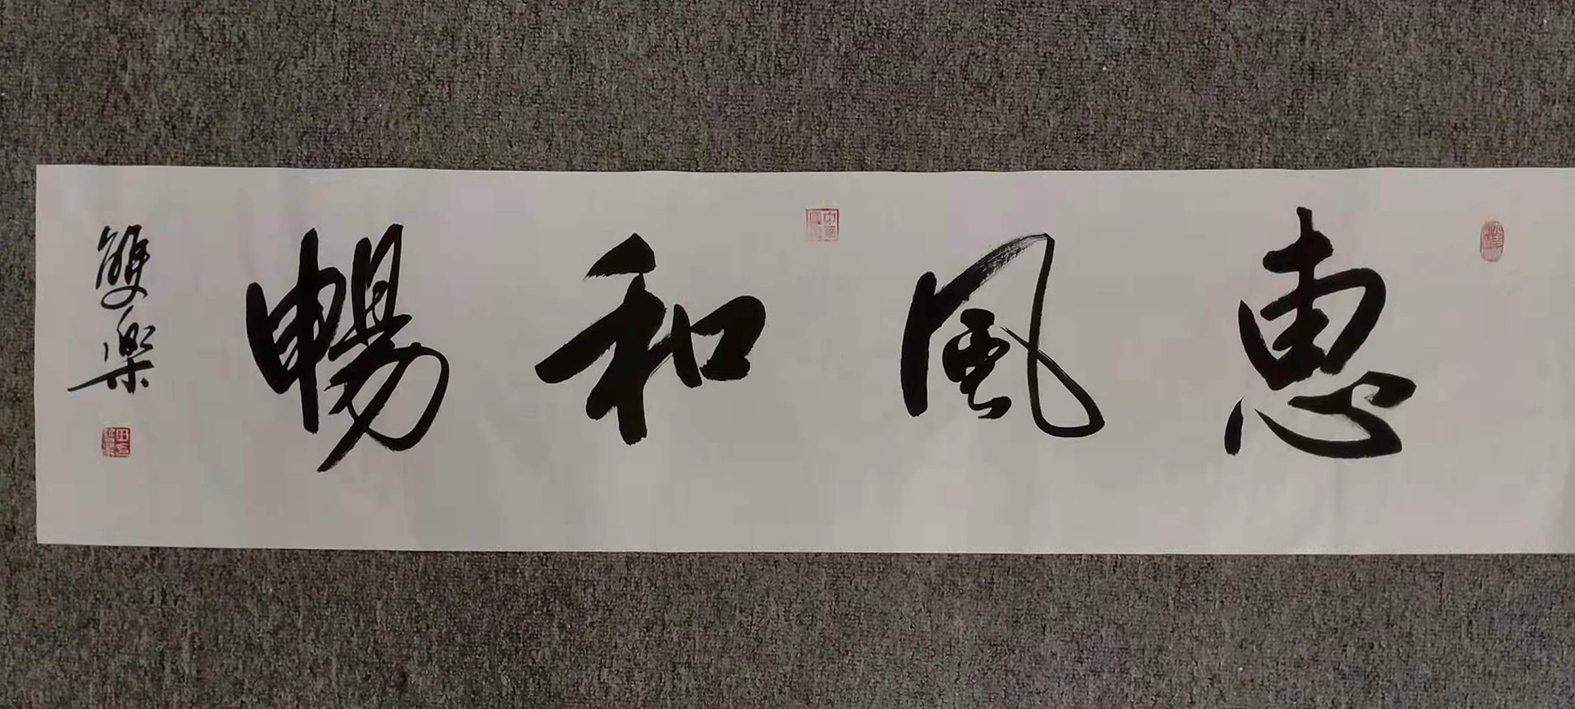 惠風和暢
雙樂